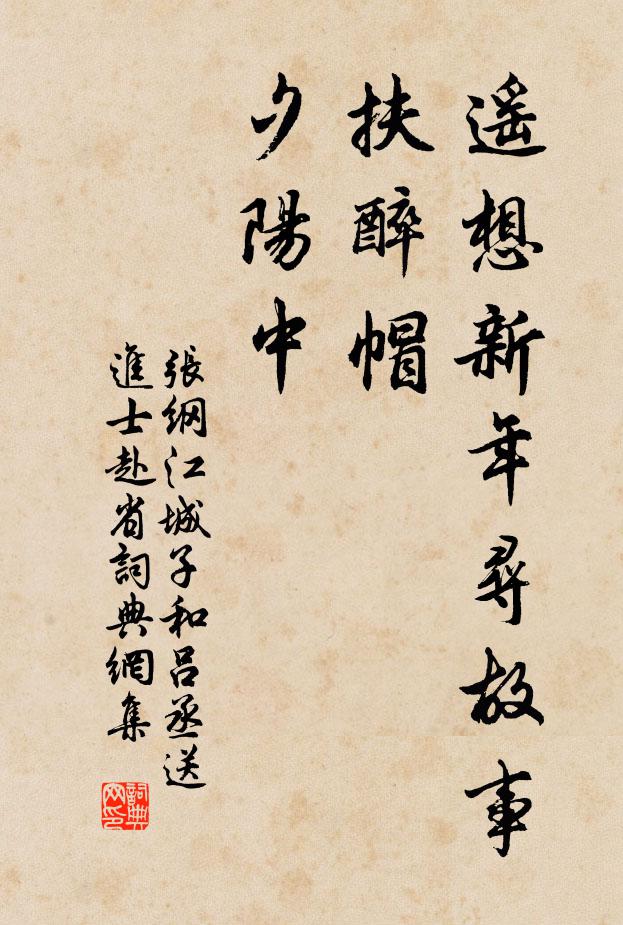 遥想新年尋故事
扶醉帽
夕陽中
張綱江城子和呂丞送
進士赴省詞典網集
詞典
网印